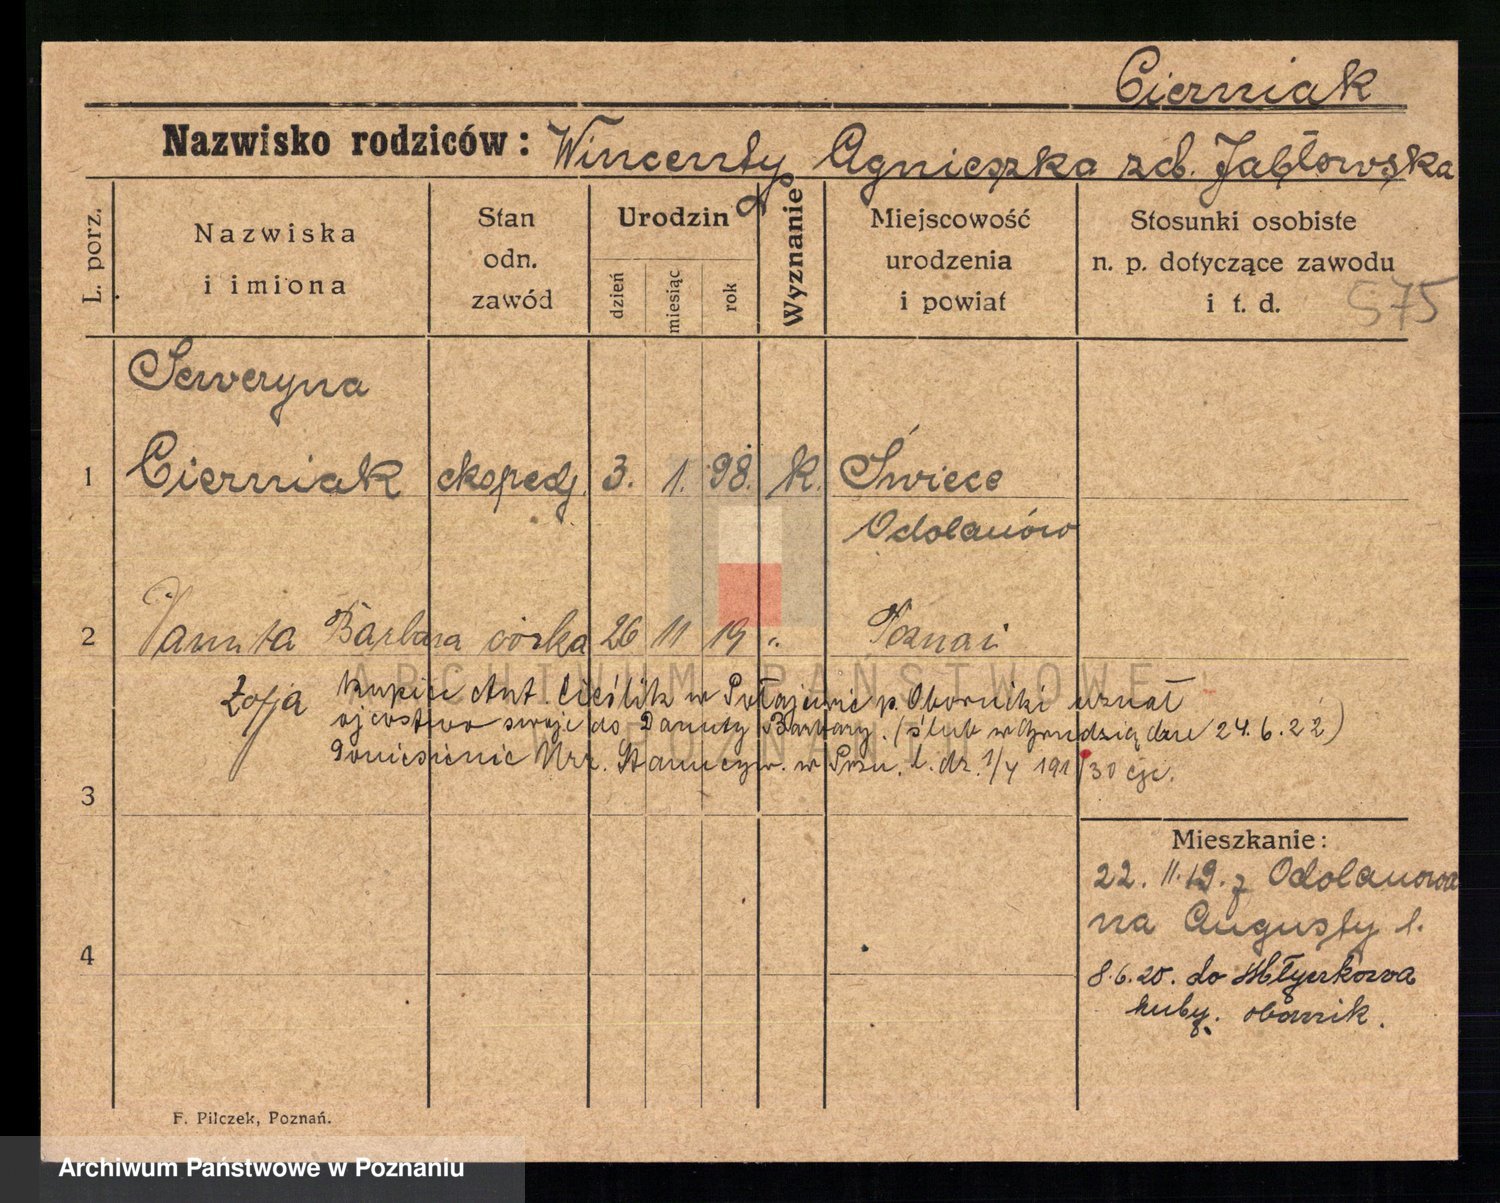 Cierniak
Nazwisko rodziców: Wincenty Agnieszka zd. Jabłowska
L. porz.
Nazwiska i imiona
Stan odn. zawód
Urodzin
dzień
miesiąc
rok
Wyznanie
Miejscowość urodzenia i powiat
Stosunki osobiste n. p. dotyczące zawodu i t. d.
575
Seweryna
1 Cierniak ekspedj. 3. 1. 98. k. Świece
Odolanów
2 Danuta Barbara córka 26 11 19 „ Poznań
Zofja
kupiec Ant. Cieślik w Połajewie p. Oborniki uznał
ojcostwo swoje do Danuty Barbary. (ślub w Grudziądzu 24.6.22)
Doniesienie Urz. Stanu cyw. w Pozn. l. dz. 1/4 191/30
3
Mieszkanie:
22. 11. 19. z Odolanowa
na Augusty 1.
4
8.6.20. do Młynkowa
oborník.
F. Pilczek, Poznań.
ARCHIWUM PAŃSTWOWE
W POZNANIU
Archiwum Państwowe w Poznaniu